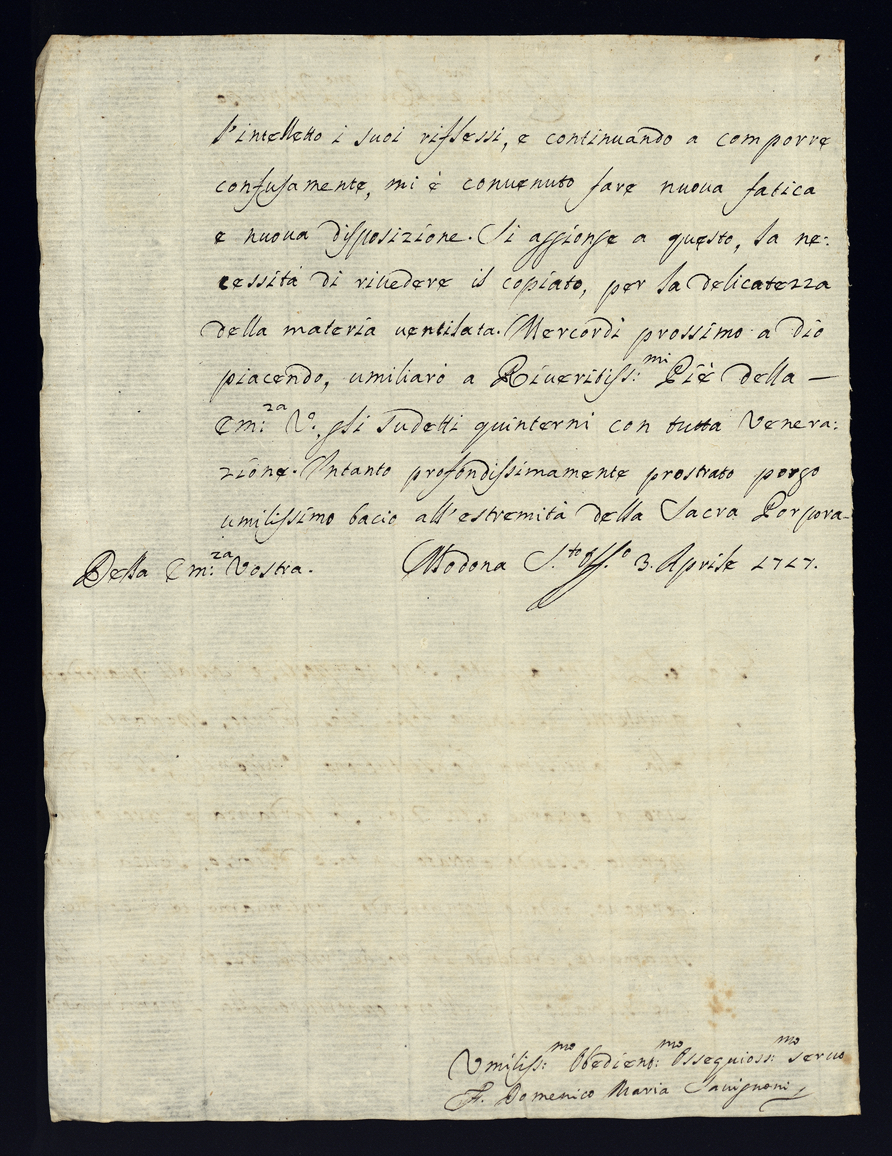 l'intelletto i suoi riflessi, e continuando a comporre
confusamente, mi è convenuto fare nuova fatica
e nuova disposizione. Si aggionge a questo, la ne:
cessità di rivedere il copiato, per la delicatezza
della materia ventilata. Mercordì prossimo a Dio
piacendo, umiliarò a Riveritiss:mi Piè della —
Em:za Va. gli sudetti quinterni con tutta Venera:
zione. Intanto profondissimamente prostrato porgo
umilissimo bacio all'estremità della Sacra Porpora-
Della Em:za Vostra. Modona S.to Off.o 3. Aprile 1717.
Umiliss:mo Obedient:mo Ossequioss:mo servo
F. Domenico Maria Savignoni